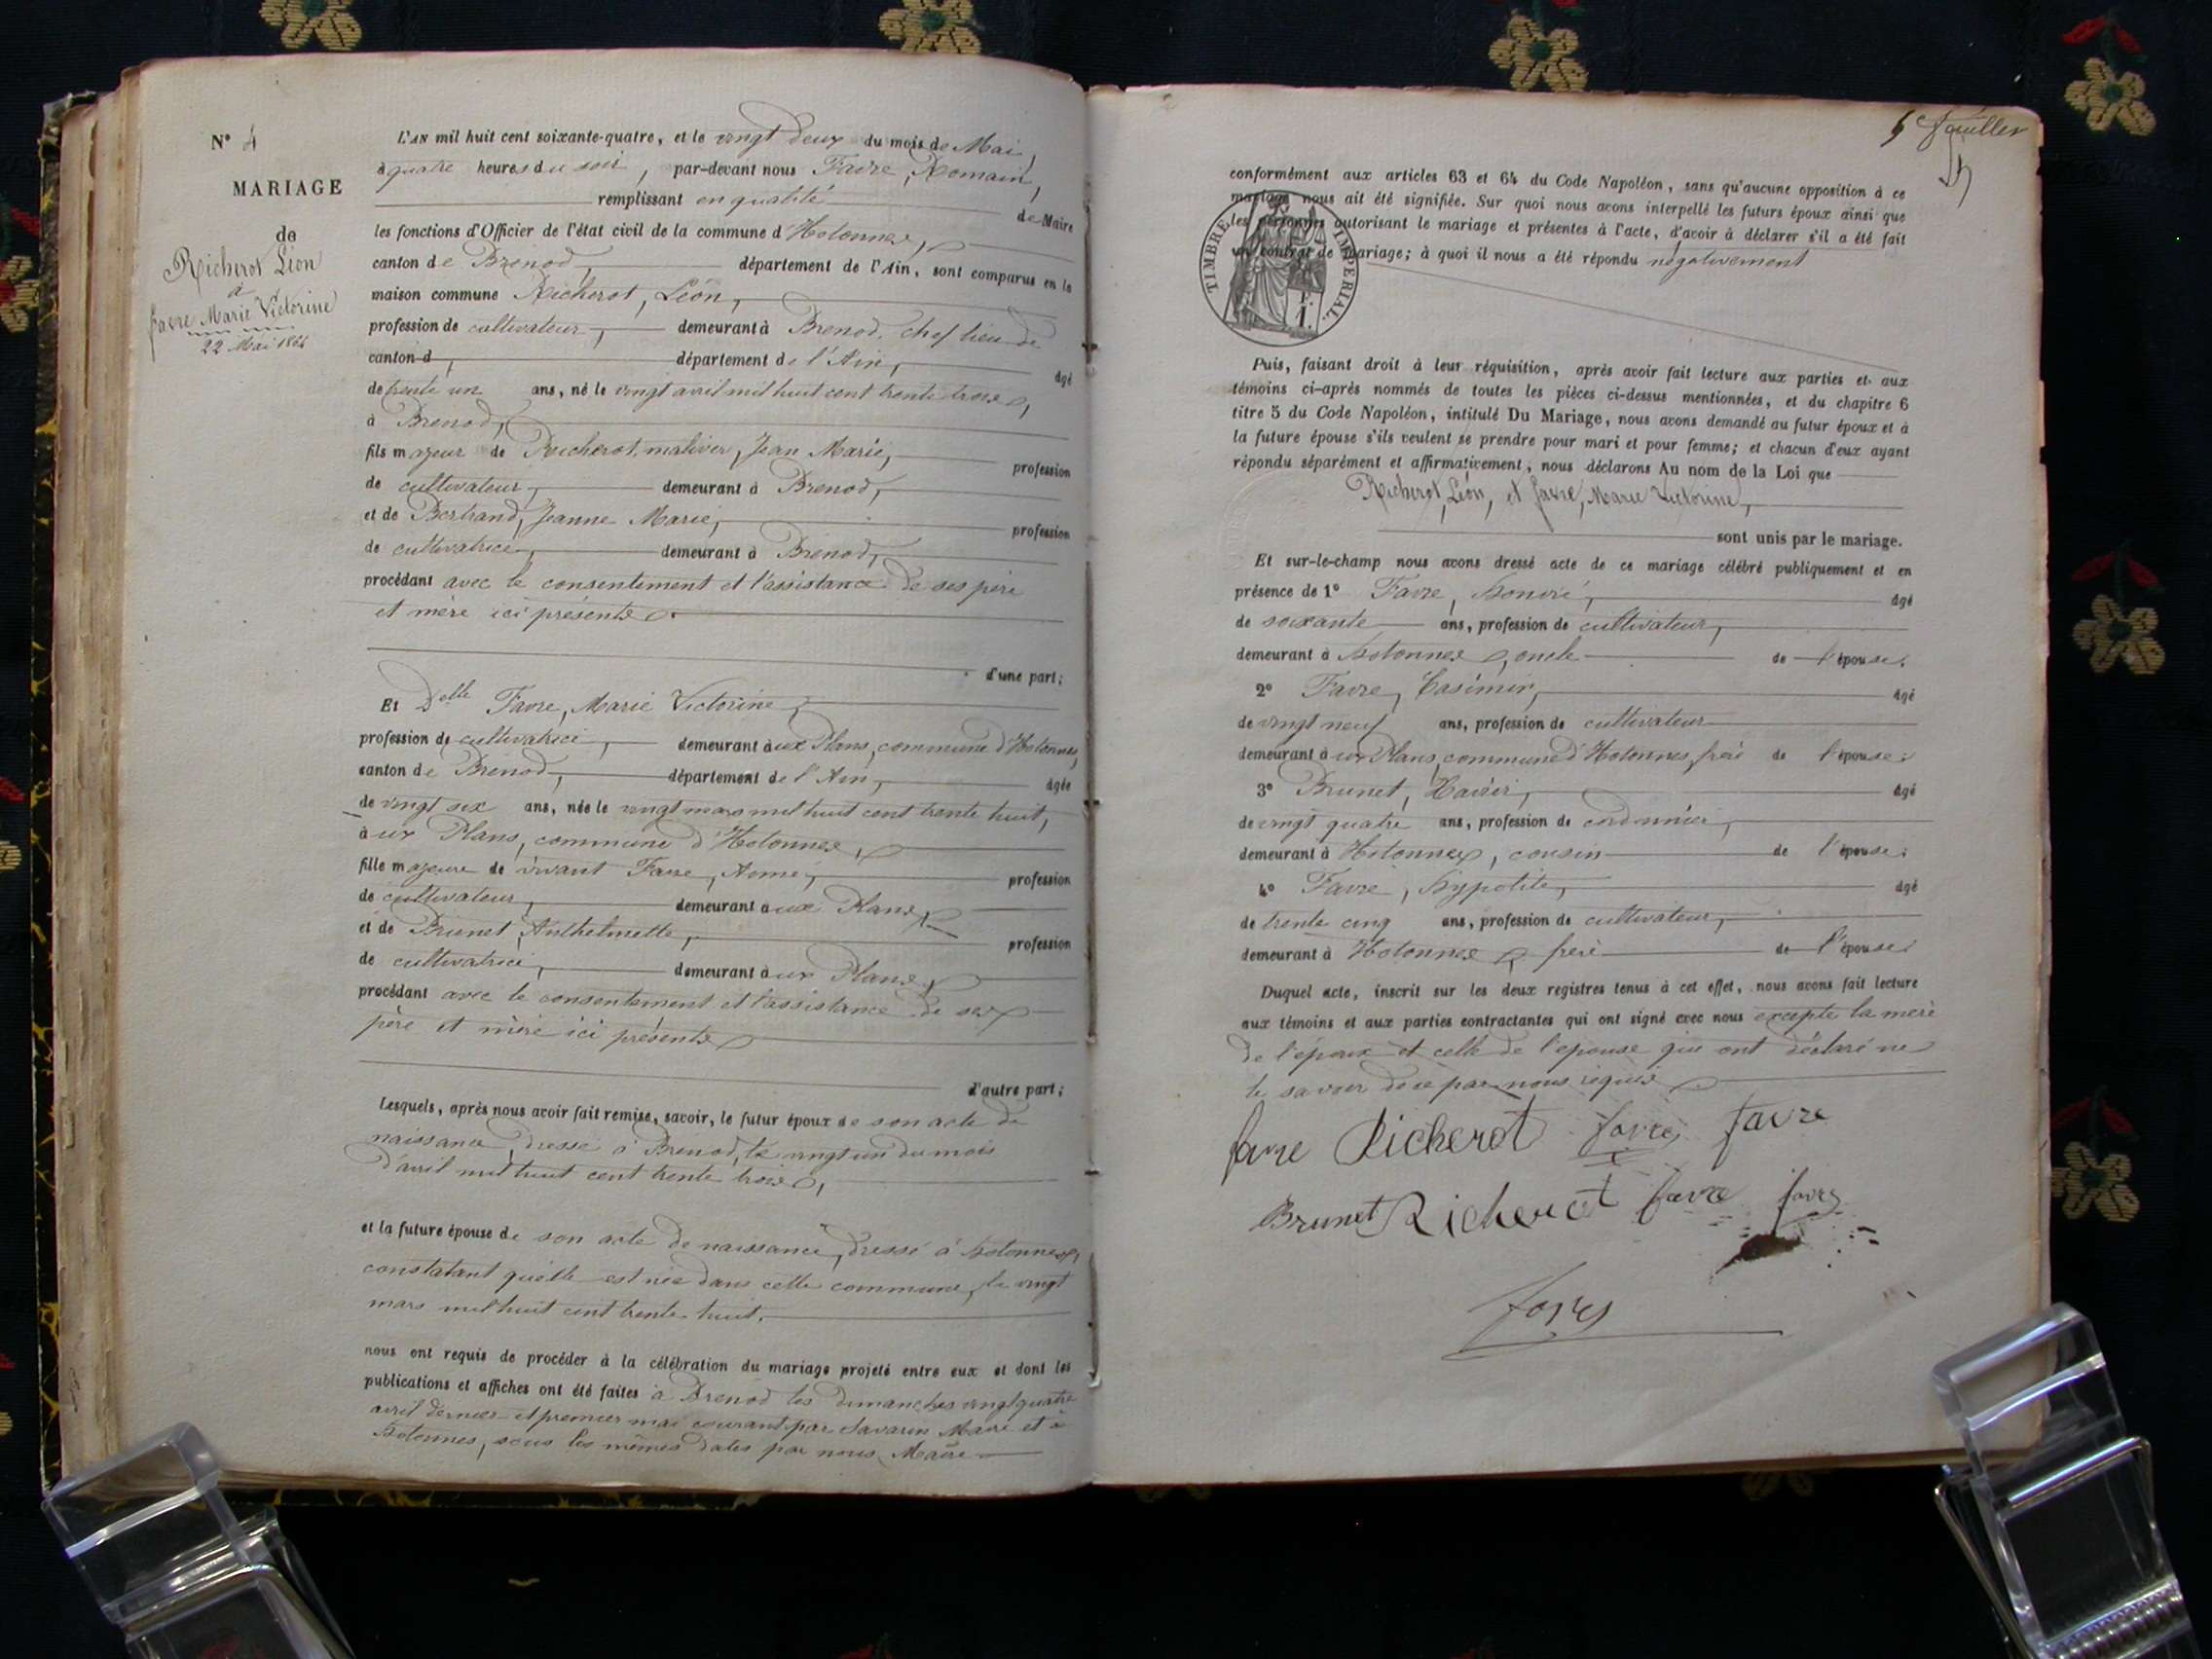 N° 4
MARIAGE
de
Richerot Léon
à
favre Marie Victorine
22 Mai 1864
L'AN mil huit cent soixante-quatre, et le vingt deux du mois de Mai,
à quatre heures du soir, par-devant nous Favre, Romain,
remplissant en qualité de Maire
les fonctions d'Officier de l'état civil de la commune d'Hotonnes,
canton de Brenod, département de l'Ain, sont comparus en la
maison commune Richerot, Léon,
profession de cultivateur, demeurant à Brenod, chef lieu de
canton d, département de l'Ain, âgé
de trente un ans, né le vingt avril mil huit cent trente trois,
à Brenod,
fils majeur de Richerot, Jean Marie, profession
de cultivateur, demeurant à Brenod,
et de Bertrand, Jeanne Marie, profession
de cultivatrice, demeurant à Brenod,
procédant avec le consentement et l'assistance de ses père
et mère ici présents.
d'une part;
Et Delle Favre, Marie Victorine,
profession de cultivatrice, demeurant aux Plans, commune d'Hotonnes,
canton de Brenod, département de l'Ain, âgée
de vingt six ans, née le vingt mars mil huit cent trente huit,
aux Plans, commune d'Hotonnes,
fille majeure de vivant Favre, Aimé, profession
de cultivateur, demeurant aux Plans,
et de Brunet, Anthelmette, profession
de cultivatrice, demeurant aux Plans,
procédant avec le consentement et l'assistance de ses
père et mère ici présents
d'autre part;
Lesquels, après nous avoir fait remise, savoir, le futur époux de son acte de
naissance, dressé à Brenod, le vingt un du mois
d'avril mil huit cent trente trois,
et la future épouse de son acte de naissance, dressé à hotonnes,
constatant qu'elle est née dans cette commune, le vingt
mars mil huit cent trente huit.
nous ont requis de procéder à la célébration du mariage projeté entre eux et dont les
publications et affiches ont été faites à Brenod les dimanches vingt quatre
avril dernier et premier mai courant par Savarin Maire et à
hotonnes, sous les mêmes dates par nous, Maire
5e feuillet
conformément aux articles 63 et 64 du Code Napoléon, sans qu'aucune opposition à ce
mariage nous ait été signifiée. Sur quoi nous avons interpellé les futurs époux ainsi que
les personnes autorisant le mariage et présentes à l'acte, d'avoir à déclarer s'il a été fait
un contrat de mariage; à quoi il nous a été répondu négativement
TIMBRE IMPÉRIAL
F.
1.
Puis, faisant droit à leur réquisition, après avoir fait lecture aux parties et aux
témoins ci-après nommés de toutes les pièces ci-dessus mentionnées, et du chapitre 6
titre 5 du Code Napoléon, intitulé Du Mariage, nous avons demandé au futur époux et à
la future épouse s'ils veulent se prendre pour mari et pour femme; et chacun d'eux ayant
répondu séparément et affirmativement, nous déclarons Au nom de la Loi que
Richerot, Léon, et favre, Marie Victorine,
sont unis par le mariage.
Et sur-le-champ nous avons dressé acte de ce mariage célébré publiquement et en
présence de 1° Favre, honoré, âgé
de soixante ans, profession de cultivateur,
demeurant à hotonnes, oncle de l'épouse.
2° Favre, Casimir, âgé
de vingt neuf ans, profession de cultivateur
demeurant aux Plans, commune d'Hotonnes, frère de l'épouse;
3° Brunet, Xavier, âgé
de vingt quatre ans, profession de cordonnier,
demeurant à Hotonnes, cousin de l'épouse;
4° Favre, hypolite, âgé
de trente cinq ans, profession de cultivateur,
demeurant à Hotonnes, frère de l'épouse;
Duquel acte, inscrit sur les deux registres tenus à cet effet, nous avons fait lecture
aux témoins et aux parties contractantes qui ont signé avec nous excepté la mère
de l'époux et celle de l'épouse qui ont déclaré ne
le savoir de ce par nous requis
favre Richerot favre favre
Brunet Richerot favre favre
favre